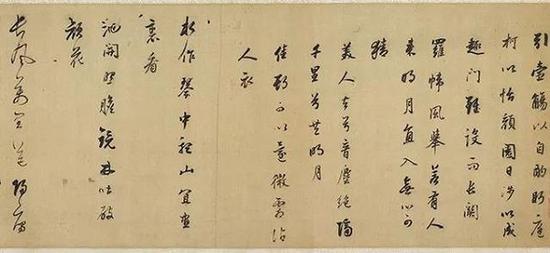 引壺觴以自酌眄庭
柯以怡顏園日涉以成
趣門雖設而長關
羅幃風舉若有人
来明月直入無心可
猜
美人去兮音塵絕隔
千里兮共明月
佳期可以還微霜沾
人衣
水作琴中聽山宜畫
裏看
池開照膽鏡林吐破
顏花
長風萬里